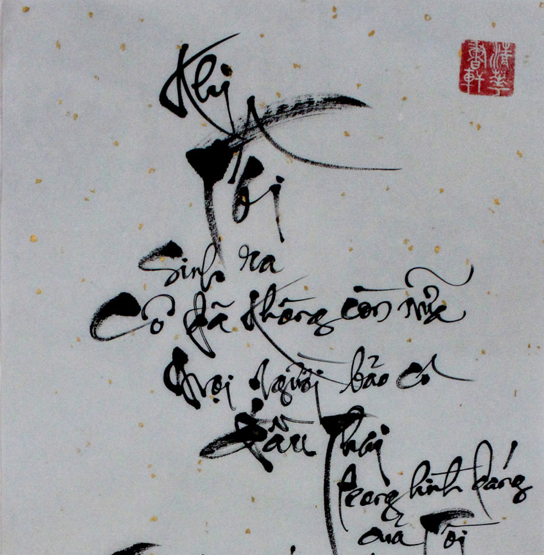 Khi
Tôi
Sinh ra
Cô đã không còn nữa
Mọi người bảo cô
Đầu Thai
trong hình dáng
của Tôi